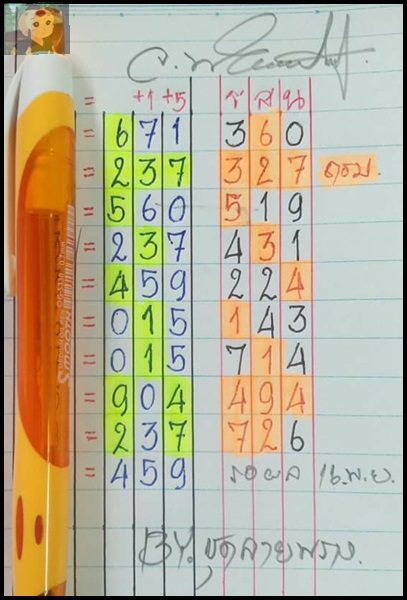 = +1 +5 ร ส น
= 6 7 1 3 6 0
= 2 3 7 3 2 7 ตรง.
= 5 6 0 5 1 9
= 2 3 7 4 3 1
= 4 5 9 2 2 4
= 0 1 5 1 4 3
= 0 1 5 7 1 4
= 9 0 4 4 9 4
= 2 3 7 7 2 6
= 4 5 9 รอผล 16.พ.ย.
BY.